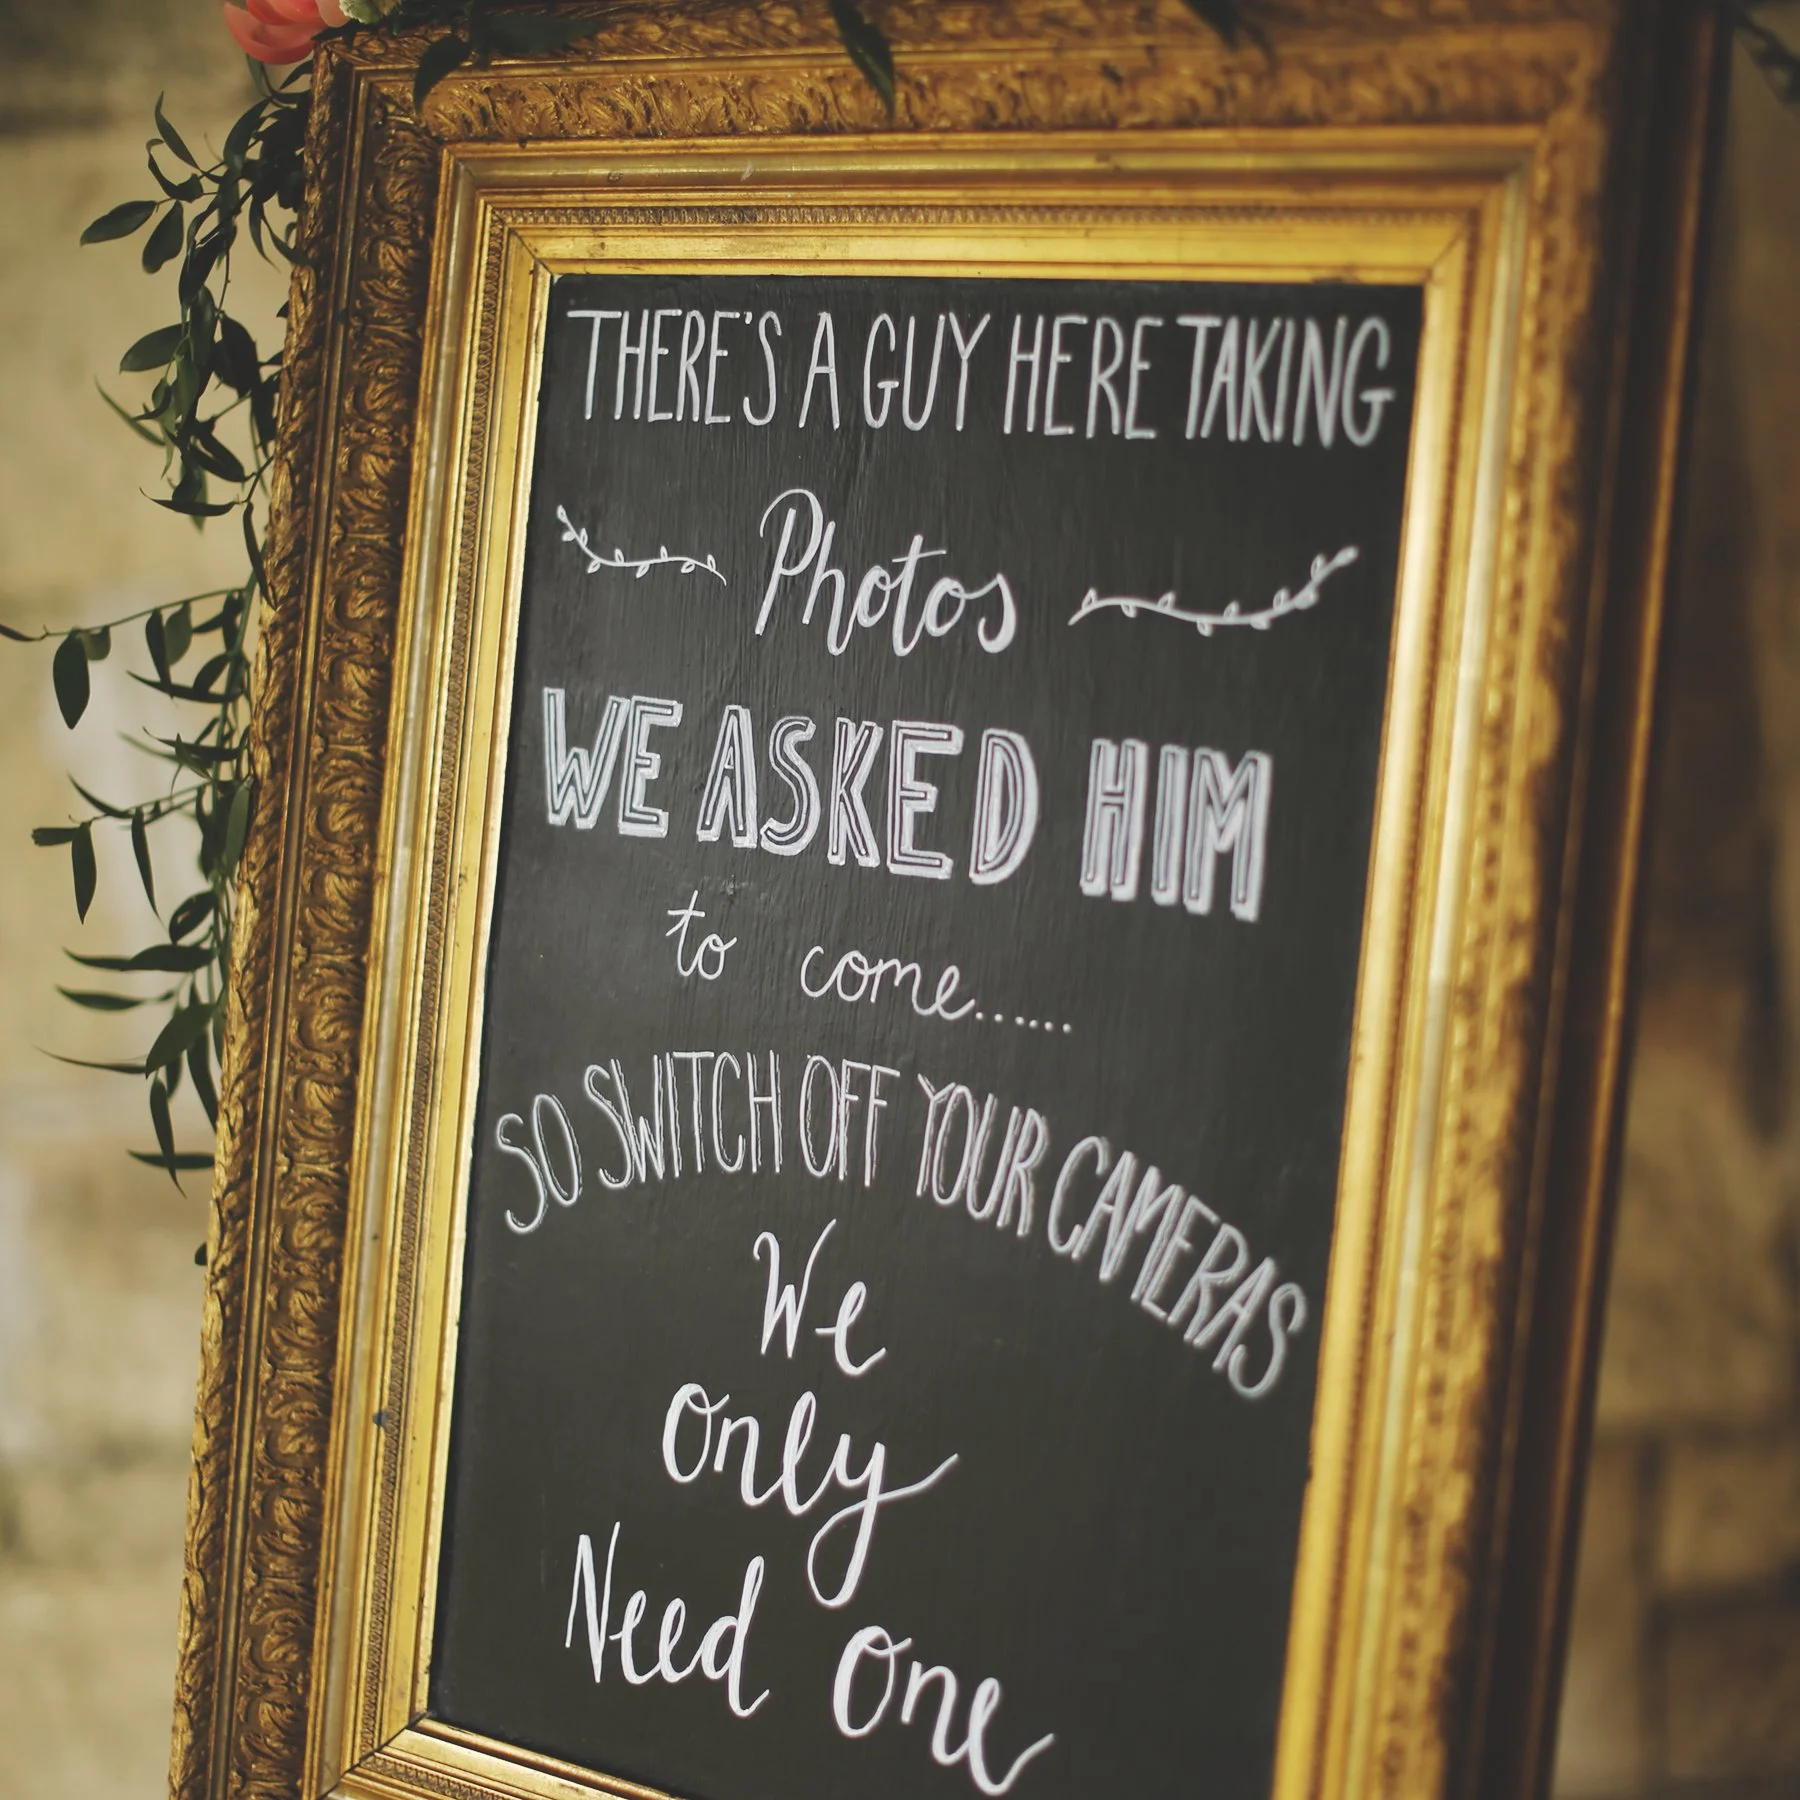 THERE'S A GUY HERE TAKING
Photos
WE ASKED HIM
to come......
SO SWITCH OFF YOUR CAMERAS
We
only
Need One